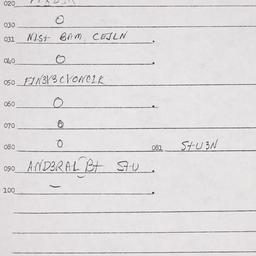 020
030 O
031 NISt BAM CEJLN .
040 O .
050 FIN3V3CVONCIR
060 O .
070 O
080 O 081 StU3N
090 AND3RAL Bt StU .
100 .